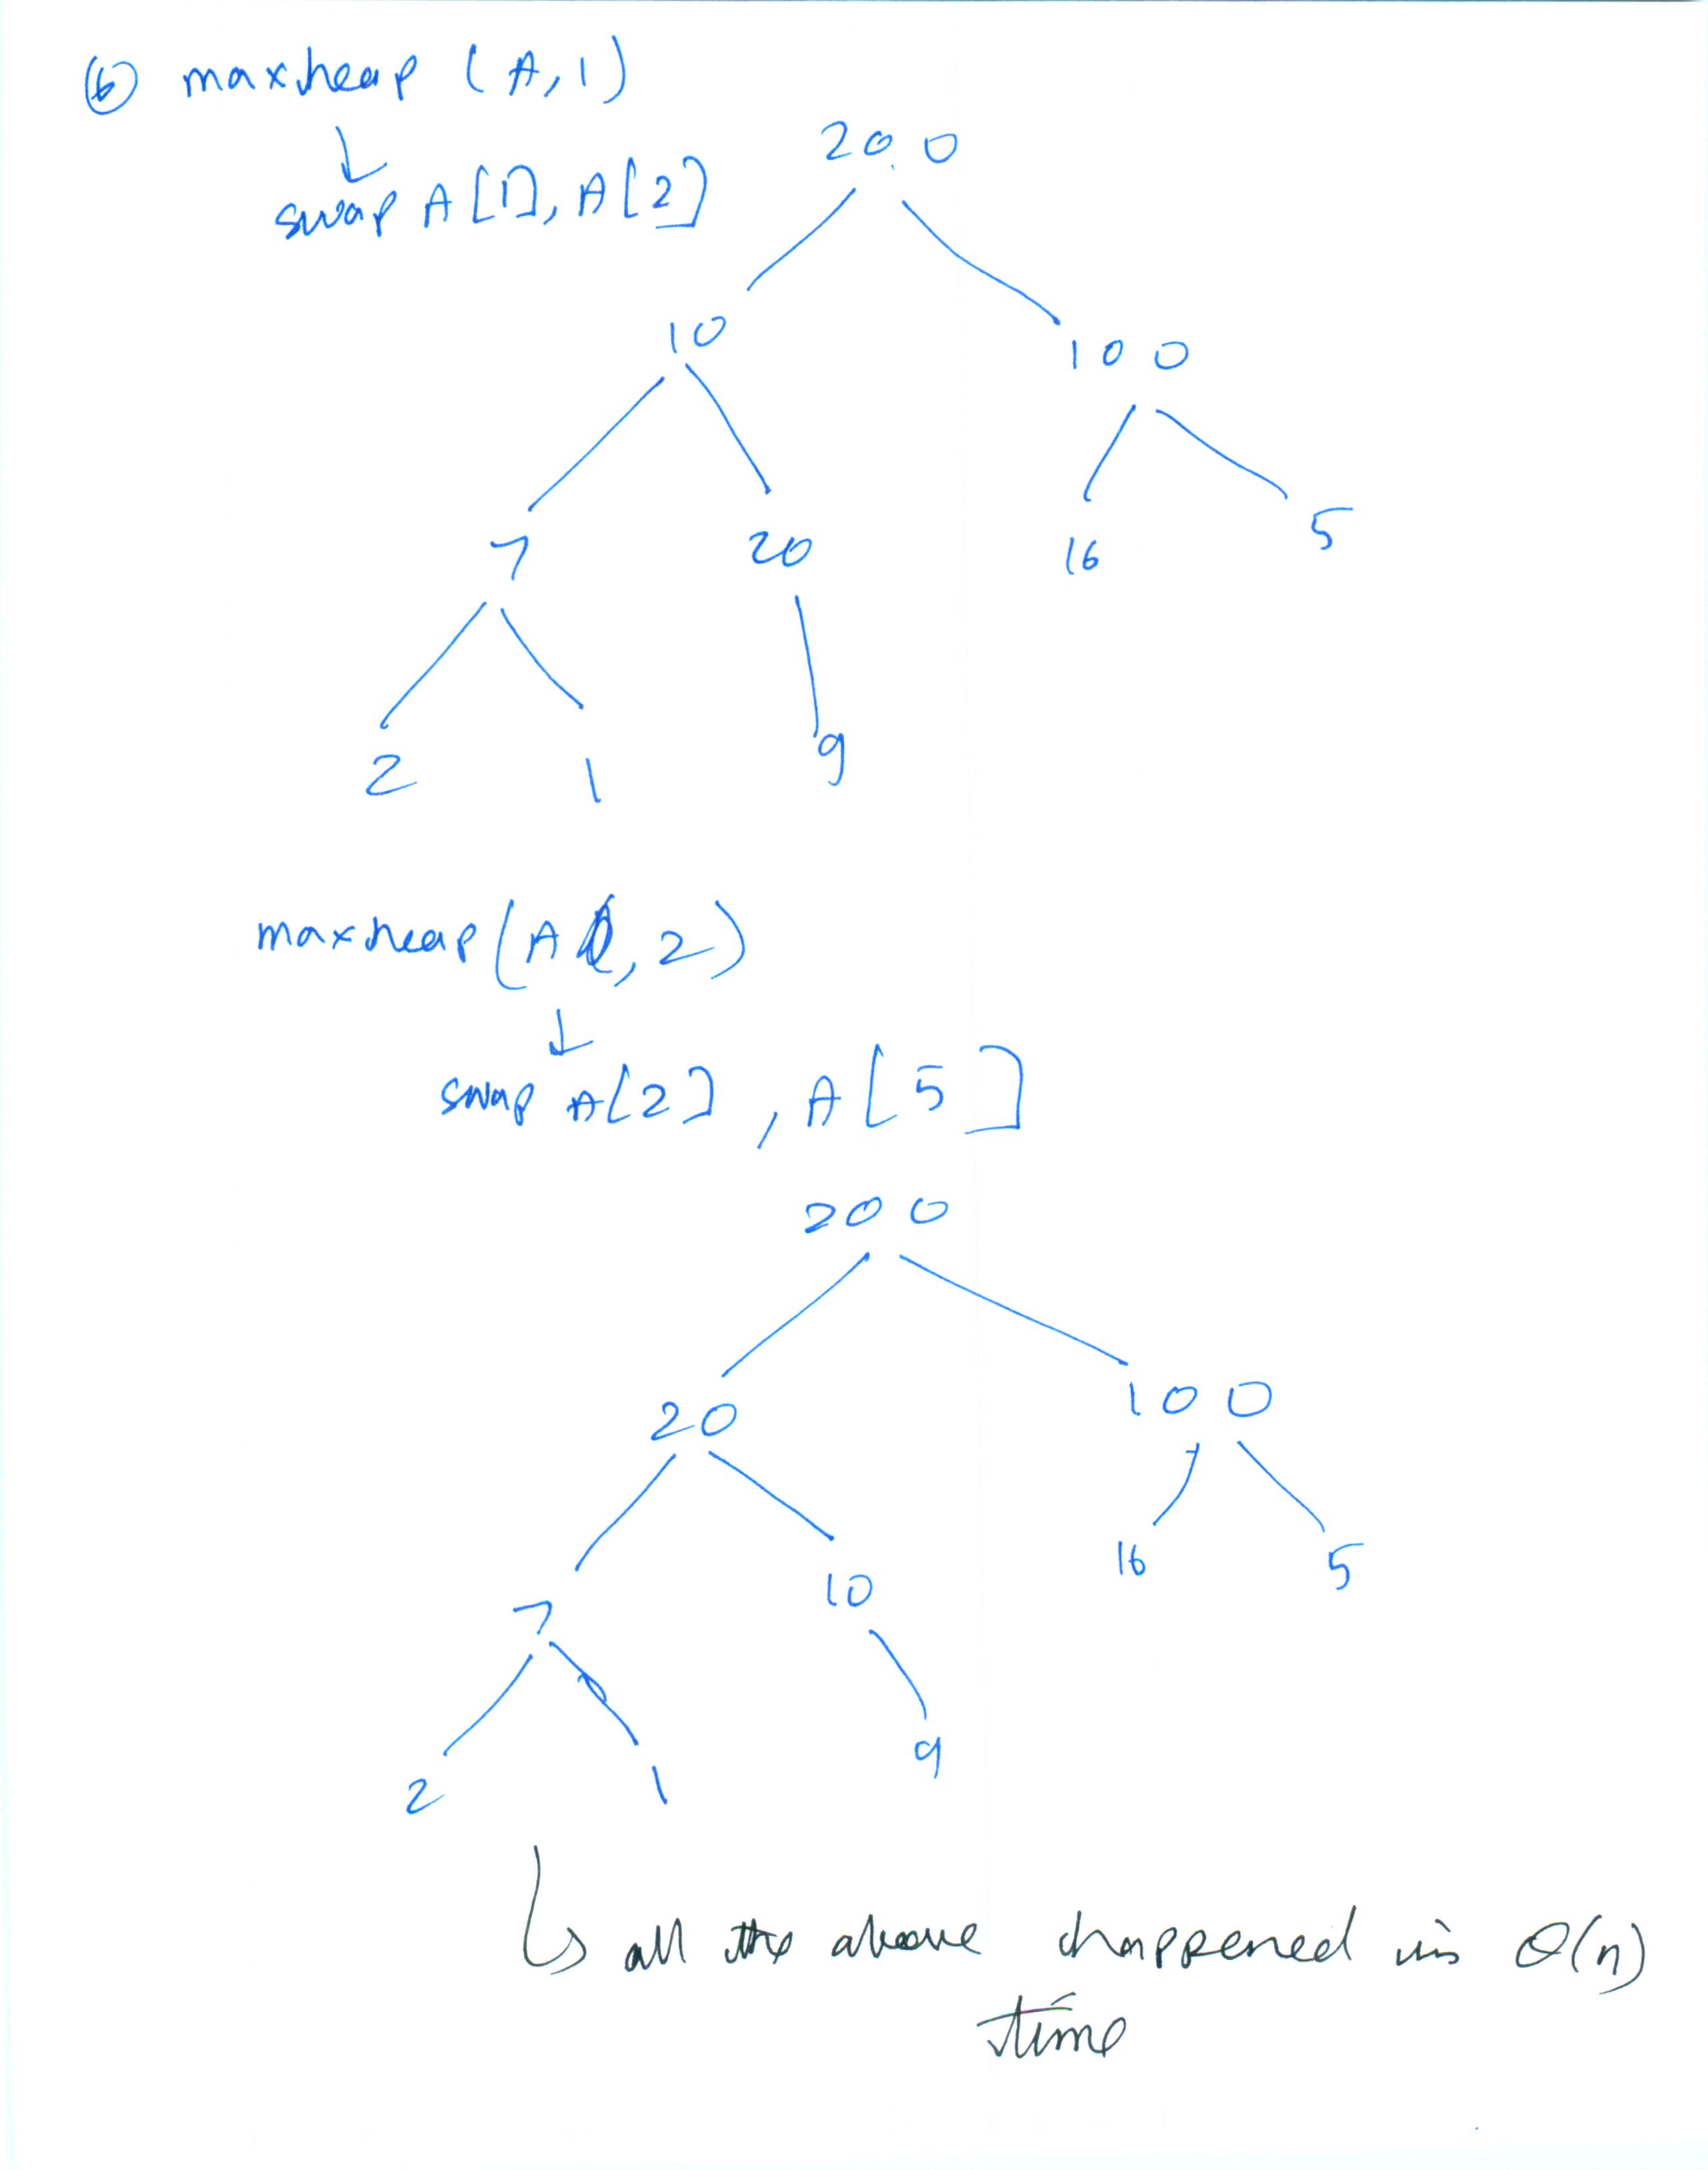 (6) maxheap (A, 1)
↓
swap A[1], A[2]
200
10
100
7
20
16
5
2
1
9
maxheap(A, 2)
↓
swap A[2], A[5]
200
20
100
7
10
16
5
2
1
9
↳ all the above happened in O(n)
time